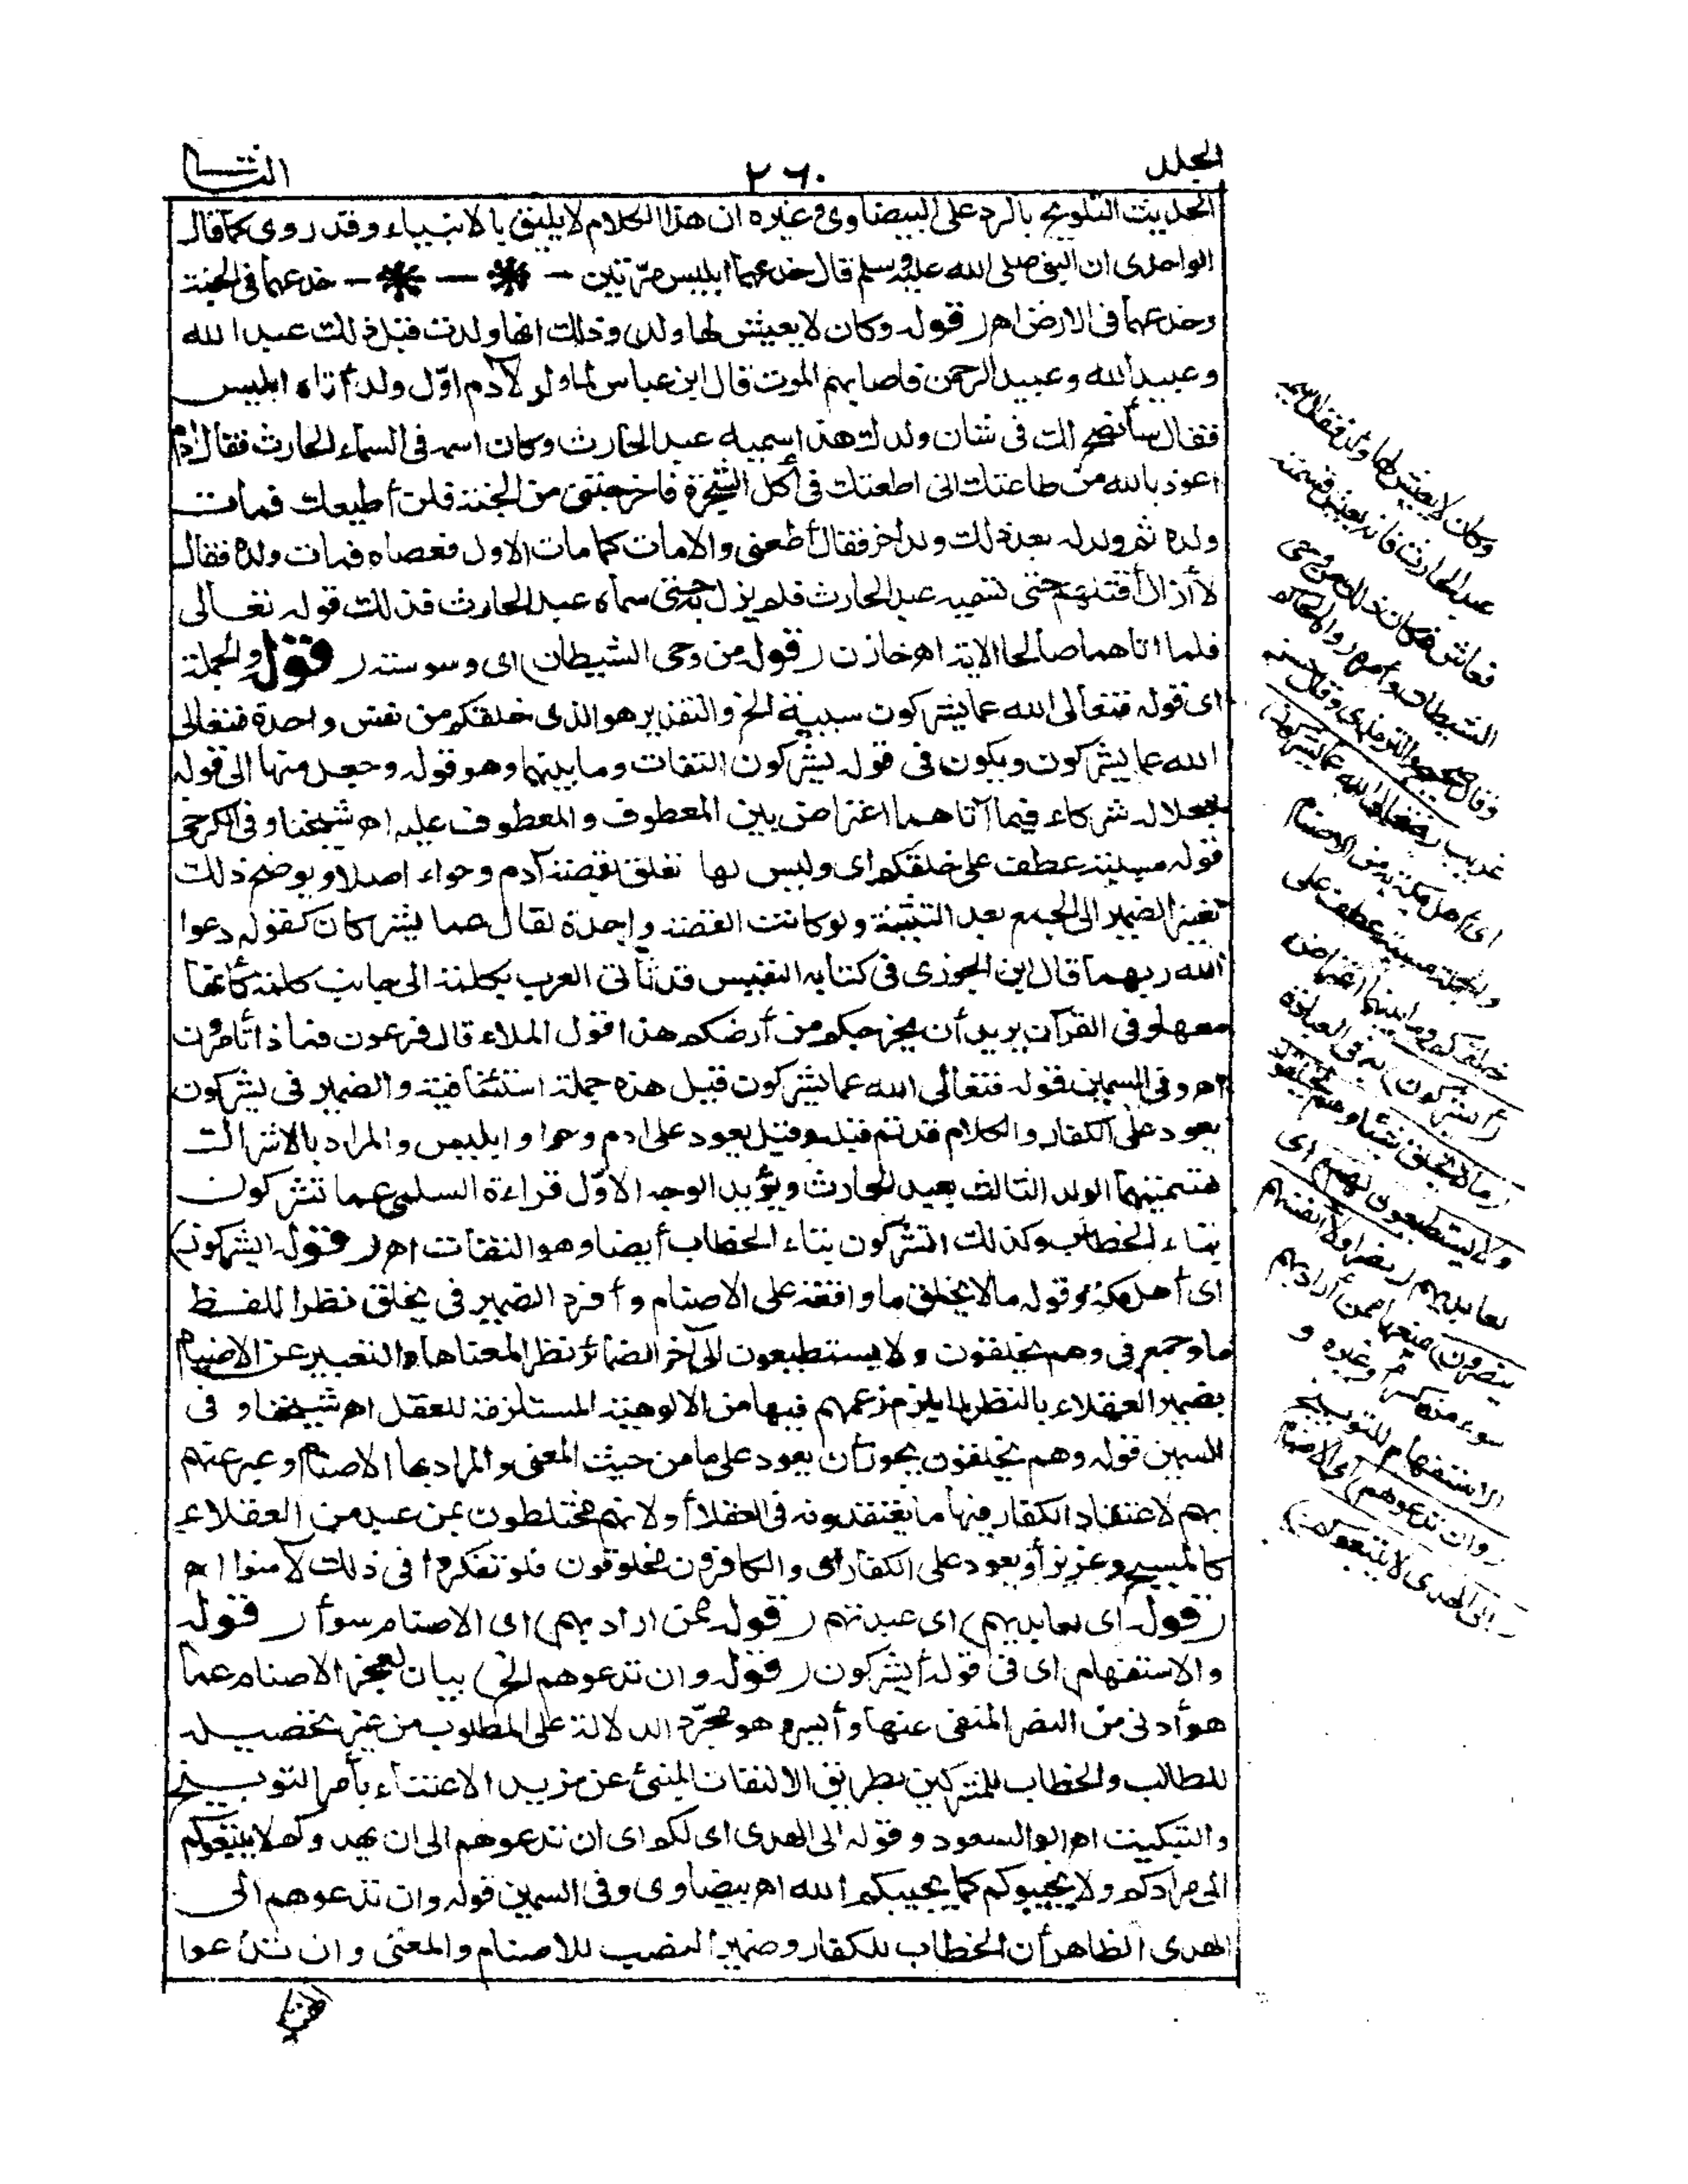 المجلد ٢٦٠ الثانى
الحديث التلويح بالرد على البيضاوى وغيره ان هذا الكلام لا يليق بالانبياء وقد روى كما قال
الواحدى ان النبى صلى الله عليه وسلم قال خدعهما ابليس مرّتين — خدعهما فى الجنة
وخدعهما فى الارض اهـ (قوله وكان لا يعيش لها ولد) وذلك انها ولدت قبل ذلك عبد الله
وعبيد الله وعبد الرحمن فاصابهم الموت قال ابن عباس لما ولد لآدم اوّل ولد أتاه ابليس
فقال سأنصح لك فى شان ولدك هذا سميه عبد الحارث وكان اسمه فى السماء الحارث فقال آدم
اعوذ بالله من طاعتك انى اطعتك فى أكل الشجرة فاخرجتنى من الجنة فلن أطيعك فمات
ولده ثم ولد له بعد ذلك ولد آخر فقال أطعنى والا مات كما مات الاول فعصاه فمات ولده فقال
لا أزال أقتلهم حتى تسميه عبد الحارث فلم يزل به حتى سماه عبد الحارث فذلك قوله تعالى
فلما اتاهما صالحا الاية اهـ خازن (قوله من وحى الشيطان) اى وسوسته (قوله والجملة
اى قوله فتعالى الله عما يشركون سببية الخ والتقدير هو الذى خلقكم من نفس واحدة فتعالى
الله عما يشركون ويكون فى قوله يشركون التفات وما بينهما وهو قوله وجعل منها الى قوله
جعلا له شركاء فيما آتاهما اعتراض بين المعطوف والمعطوف عليه اهـ شيخنا وفى الكرخى
قوله مسببة عطف على خلقكم اى وليس لها تعلق بقصة آدم وحواء اصلا ويوضح ذلك
تغيير الضمير الى الجمع بعد التثنية ولو كانت القصة واحدة لقال عما يشركان كقوله دعوا
الله ربهما قال ابن الجوزى فى كتابه النفيس قد تأتى العرب بكلمة الى جانب كلمة كأنها
معها وفى القرآن يريد أن يخرجكم من أرضكم هذا قول الملاء قال فرعون فماذا تأمرون
اهـ وفى السمين قوله فتعالى الله عما يشركون قيل هذه جملة استئنافية والضمير فى يشركون
يعود على الكفار والكلام قد تم قبله وقيل يعود على ادم وحوا وابليس والمراد بالاشراك
تسميتهما الولد الثالث بعبد الحارث ويؤيد الوجه الاوّل قراءة السلمى عما تشركون
بتاء الخطاب وكذلك اتشركون بتاء الخطاب أيضا وهو التفات اهـ (قوله ايشركون)
اى أهل مكة وقوله ما لا يخلق ما واقعة على الاصنام وأفرد الضمير فى يخلق نظرا للفظ
ما وجمع فى وهم يخلقون ولا يستطيعون الى آخر الضمائر نظرا لمعناها والتعبير عن الاصنام
بضمير العقلاء بالنظر لما يلزم زعمهم فيها من الالوهية المستلزمة للعقل اهـ شيخنا وفى
السمين قوله وهم يخلقون يجوز أن يعود على ما من حيث المعنى والمراد بها الاصنام وعبر عنهم
بهم لاعتقاد الكفار فيها ما يعتقدونه فى العقلاء أو لانهم مختلطون بمن عبد من العقلاء
كالمسيح وعزيز أو يعود على الكفار اى والكافرون مخلوقون فلو تفكروا فى ذلك لآمنوا اهـ
(قوله اى لعابديهم) اى عبدتهم (قوله ممن اراد بهم) اى الاصنام سوأ (قوله
والاستفهام) اى فى قوله أيشركون (قوله وان تدعوهم الخ) بيان لعجز الاصنام عما
هو أدنى من النصر المنفى عنها وأيسر وهو مجرّد الدلالة على المطلوب من غير تحصيله
للطالب والخطاب للمشركين بطريق الالتفات المنبئ عن مزيد الاعتناء بأمر التوبيخ
والتبكيت اهـ ابو السعود وقوله الى الهدى اى لكم اى ان تدعوهم الى ان يهدوكم لا يتبعوكم
الى مرادكم ولا يجيبوكم كما يجيبكم الله اهـ بيضاوى وفى السمين قوله وان تدعوهم الى
الهدى الظاهر أن الخطاب للكفار وضمير النصب للاصنام والمعنى وان تدعوا
وكان لا يعيش لها ولد فقال سميه
عبد الحارث فانه يعيش فسمته
فعاش فكان ذلك من وحى
الشيطان وأمره رواه الحاكم
وقال صحيح والترمذى وقال حسن
غريب (فتعالى الله عما يشركون)
اى اهل مكة به من الاصنام
والجملة مسببة عطف على
خلقكم وما بينهما اعتراض
(أيشركون) به فى العبادة
(ما لا يخلق شيئا وهم يخلقون
ولا يستطيعون لهم) اى
لعابديهم (نصرا ولا أنفسهم
ينصرون) بمنعها ممن أراد بهم
سوء من كسر وغيره و
الاستفهام للتوبيخ
(وان تدعوهم) اى الاصنام
(الى الهدى لا يتبعوكم)